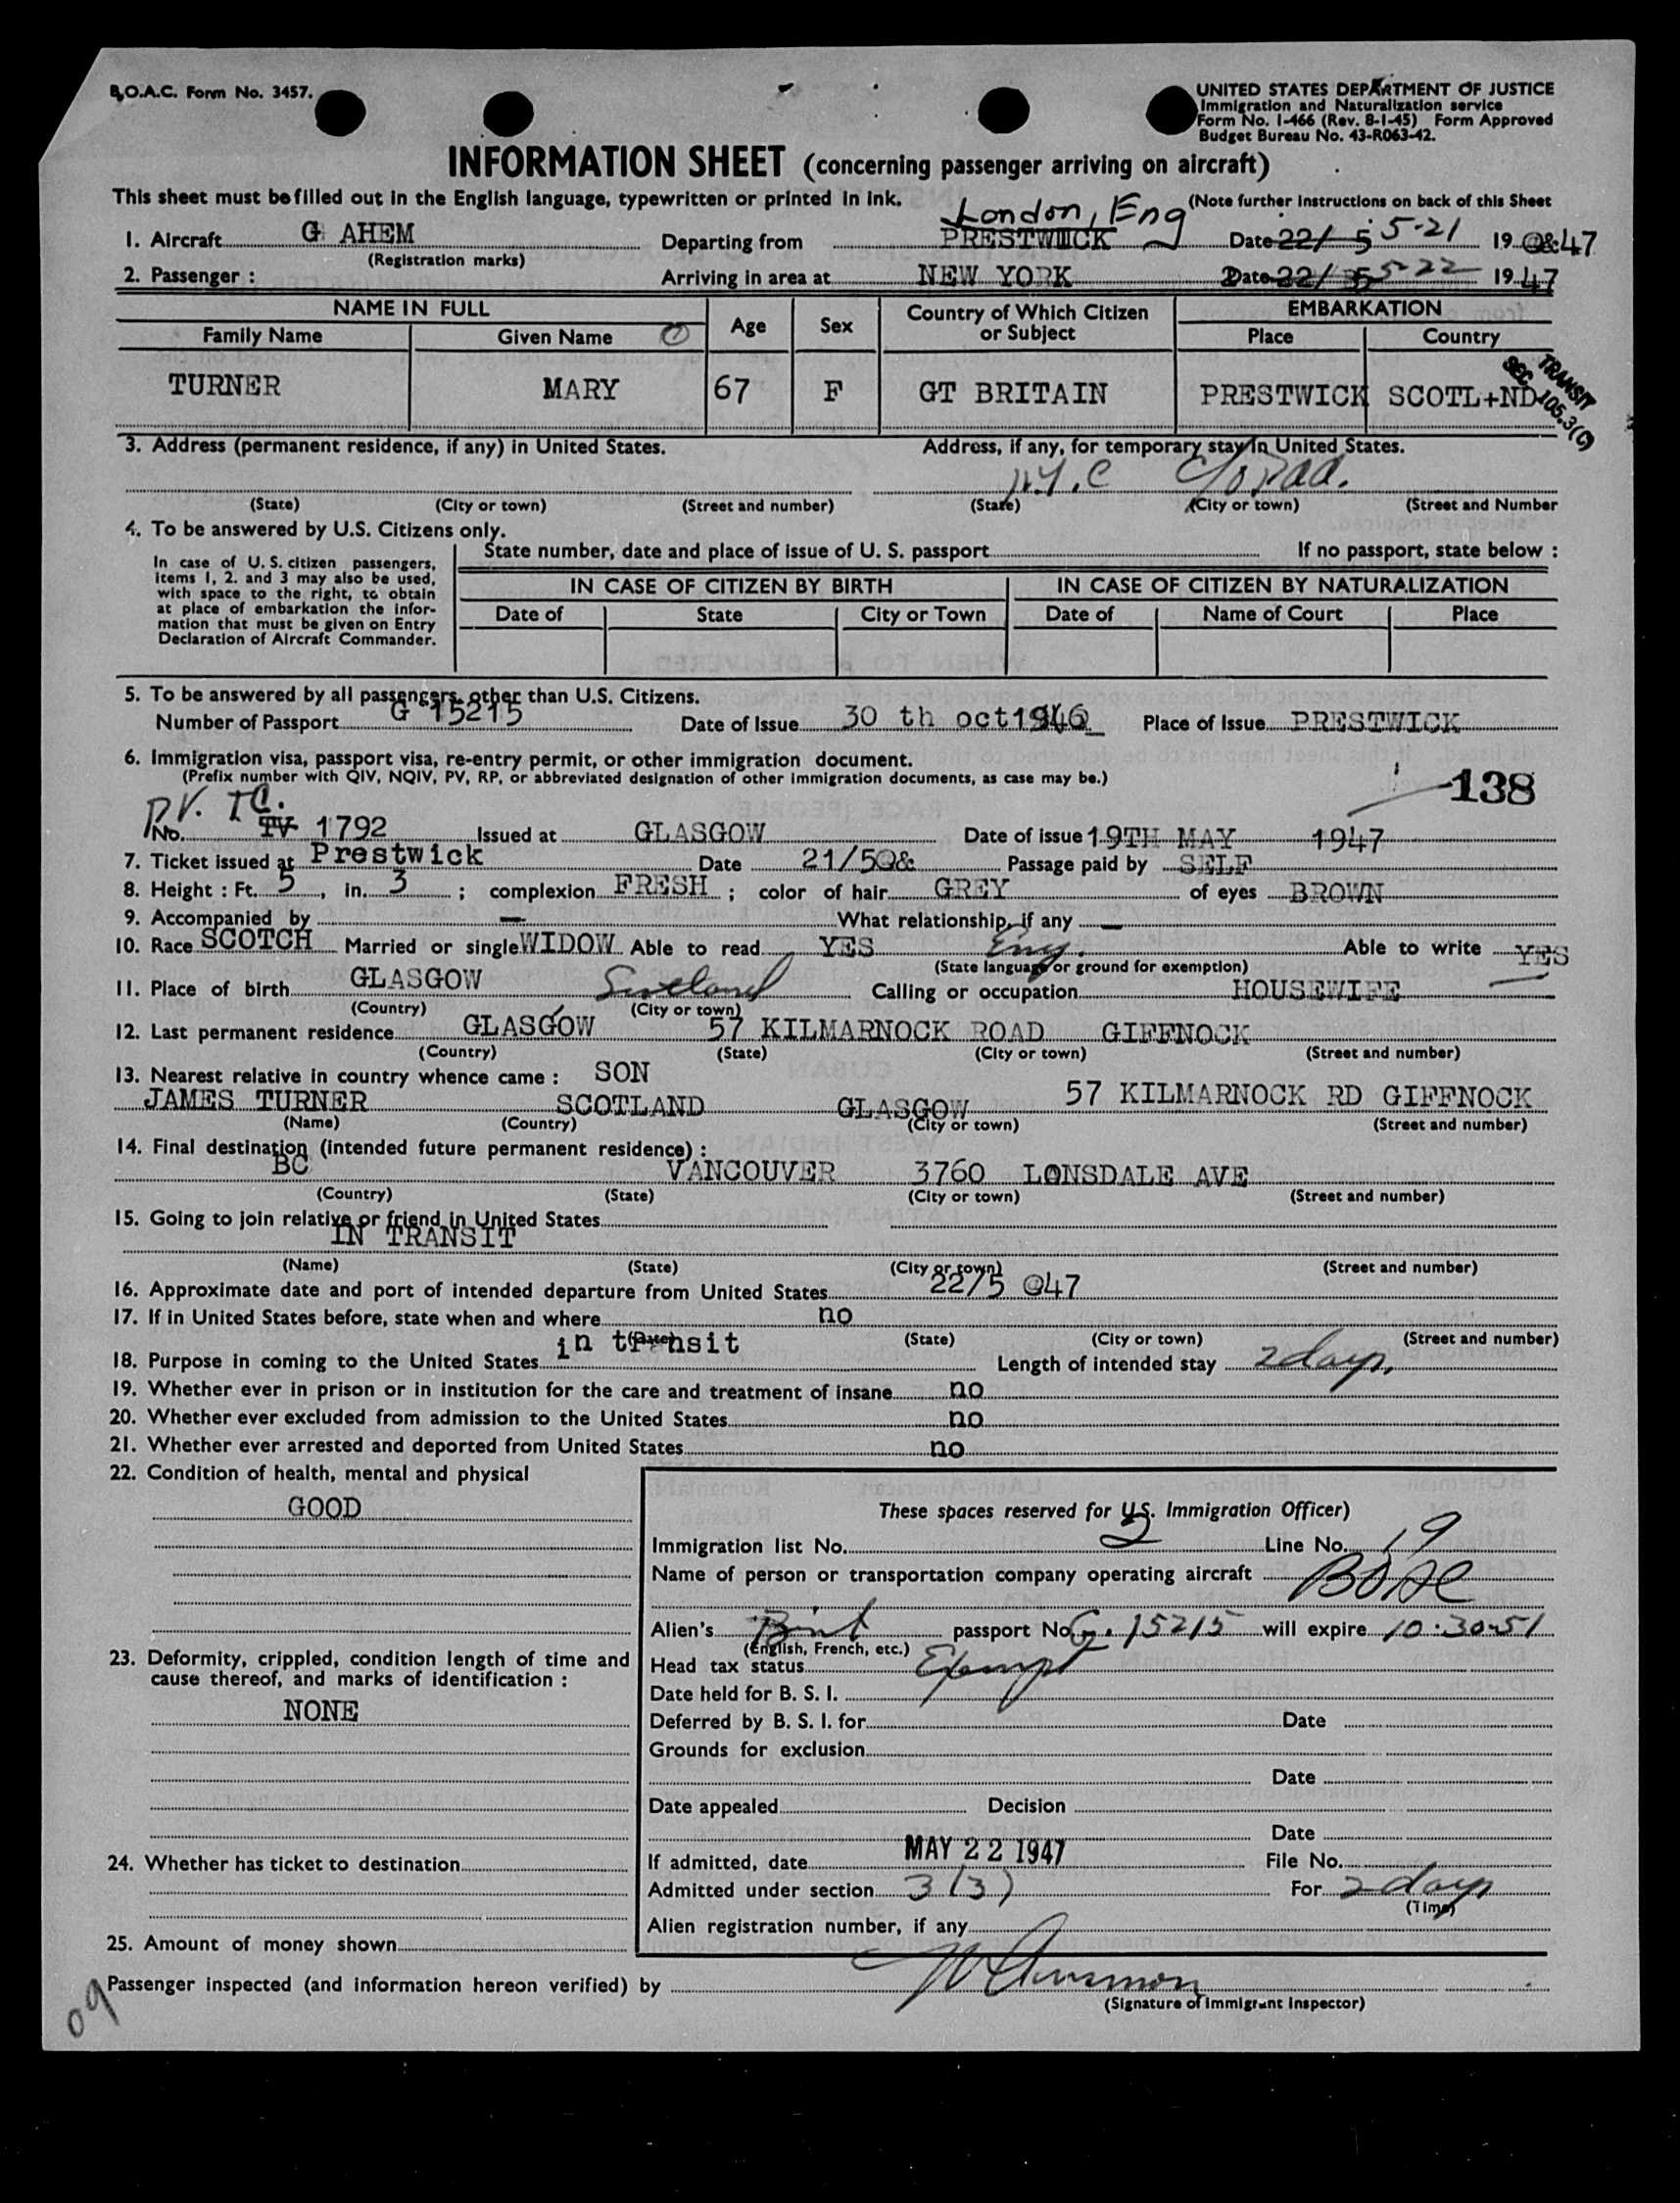 B.O.A.C. Form No. 3457.
UNITED STATES DEPARTMENT OF JUSTICE
Immigration and Naturalization service
Form No. I-466 (Rev. 8-1-45) Form Approved
Budget Bureau No. 43-R063-42.
INFORMATION SHEET (concerning passenger arriving on aircraft)
This sheet must be filled out in the English language, typewritten or printed in ink.
(Note further instructions on back of this Sheet
London, Eng
1. Aircraft G AHEM Departing from PRESTWICK Date 22/ 5 5-21 19 47
(Registration marks)
2. Passenger : Arriving in area at NEW YORK Date 22/ 5 5-22 19 47
NAME IN FULL Age Sex Country of Which Citizen or Subject EMBARKATION
Family Name Given Name Place Country
TURNER MARY 67 F GT BRITAIN PRESTWICK SCOTL+ND
TRANSIT
SEC 105.3(C)
3. Address (permanent residence, if any) in United States. Address, if any, for temporary stay in United States.
N.Y.C
(State) (City or town) (Street and number) (State) (City or town) (Street and Number
4. To be answered by U.S. Citizens only.
State number, date and place of issue of U. S. passport If no passport, state below :
In case of U. S. citizen passengers,
items 1, 2. and 3 may also be used,
with space to the right, to obtain
at place of embarkation the infor-
mation that must be given on Entry
Declaration of Aircraft Commander.
IN CASE OF CITIZEN BY BIRTH IN CASE OF CITIZEN BY NATURALIZATION
Date of State City or Town Date of Name of Court Place
5. To be answered by all passengers, other than U.S. Citizens.
Number of Passport G 15215 Date of Issue 30 th oct1946 Place of Issue PRESTWICK
6. Immigration visa, passport visa, re-entry permit, or other immigration document.
(Prefix number with QIV, NQIV, PV, RP, or abbreviated designation of other immigration documents, as case may be.)
138
PV. TC.
No. TV 1792 Issued at GLASGOW Date of issue 19TH MAY 1947
7. Ticket issued at Prestwick Date 21/5@& Passage paid by SELF
8. Height : Ft. 5, in. 3 ; complexion FRESH ; color of hair GREY of eyes BROWN
9. Accompanied by — What relationship, if any —
10. Race SCOTCH Married or single WIDOW Able to read YES Eng. Able to write YES
(State language or ground for exemption)
11. Place of birth GLASGOW Scotland Calling or occupation HOUSEWIFE
(Country) (City or town)
12. Last permanent residence GLASGOW 57 KILMARNOCK ROAD GIFFNOCK
(Country) (State) (City or town) (Street and number)
13. Nearest relative in country whence came : SON
JAMES TURNER SCOTLAND GLASGOW 57 KILMARNOCK RD GIFFNOCK
(Name) (Country) (City or town) (Street and number)
14. Final destination (intended future permanent residence) :
BC VANCOUVER 3760 LONSDALE AVE
(Country) (State) (City or town) (Street and number)
15. Going to join relative or friend in United States
IN TRANSIT
(Name) (State) (City or town) (Street and number)
16. Approximate date and port of intended departure from United States 22/5 @47
17. If in United States before, state when and where no
(Date) (State) (City or town) (Street and number)
18. Purpose in coming to the United States in transit Length of intended stay 2 days.
19. Whether ever in prison or in institution for the care and treatment of insane no
20. Whether ever excluded from admission to the United States no
21. Whether ever arrested and deported from United States no
22. Condition of health, mental and physical
GOOD
These spaces reserved for U.S. Immigration Officer)
Immigration list No. 2 Line No. 19
Name of person or transportation company operating aircraft BOAC
Alien's Brit passport No. G. 15215 will expire 10-30-51
(English, French, etc.)
23. Deformity, crippled, condition length of time and
cause thereof, and marks of identification :
NONE
Head tax status Exempt
Date held for B. S. I.
Deferred by B. S. I. for Date
Grounds for exclusion
Date
Date appealed Decision
Date
24. Whether has ticket to destination
If admitted, date MAY 22 1947 File No.
Admitted under section 3(3) For 2 days
(Time)
Alien registration number, if any
25. Amount of money shown
Passenger inspected (and information hereon verified) by
(Signature of Immigrant Inspector)
09